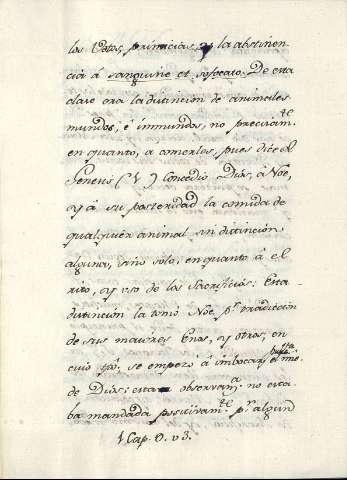 los Votos, primicias, y la abstinen-
cia á sanguine et sofocato. De esta
clase era la distincion de animales
mundos, é inmundos, no precisam.te
en quanto, a comerlos, pues dice el
Genesis (1) Concedió Dios, a Noe,
y á su posteridad la comida de
qualquier animal sin distincion
alguna, sino solo, en quanto á el
rito, y uso de los Sacrificios: Esta
distincion la tomó Noe p.r tradicion
de sus maiores Enos, y otros, en
cuio se empezo á imbocar el nre.
de Dios: esta observan.a no esta-
ba mandada positivam.te p.r algun
1 Cap. 9. v 3.